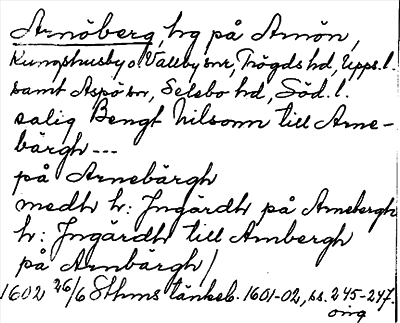 Arnöberg, hg på Arnön,
Kungshusby o. Vallby snr, Trögds hd, Upps. l.
samt Aspö sn, Selebo hd, Söd. l.
salig Bengt Nilsonn till Arne-
bärgh ---
på Arnebärgh
medh h: Jngärdh på Arnebergh
h: Jngärdh till Arnbergh
på Arnbärgh/
1602 26/6 Sthms tänkeb. 1601-02, ss. 245-247.
orig